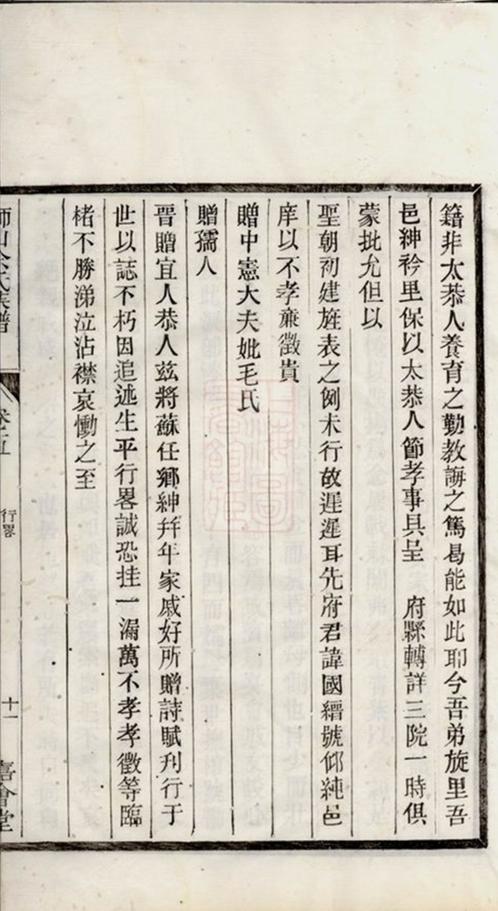 籍非太恭人養育之勤教誨之篤曷能如此耶今吾弟旋里吾
邑紳衿里保以太恭人節孝事具呈 府縣轉詳三院一時俱
蒙批允但以
聖朝初建旌表之例未行故遲遲耳先府君諱國縉號仰純邑
庠以不孝廉徵貴
贈中憲大夫妣毛氏
贈孺人
晉贈宜人恭人茲將蘇任鄉紳幷年家戚好所贈詩賦刊行于
世以誌不朽因追述生平行畧誠恐挂一漏萬不孝孝徵等臨
楮不勝涕泣沾襟哀慟之至
氏族譜
卷之五
行畧
十一
嘉會堂